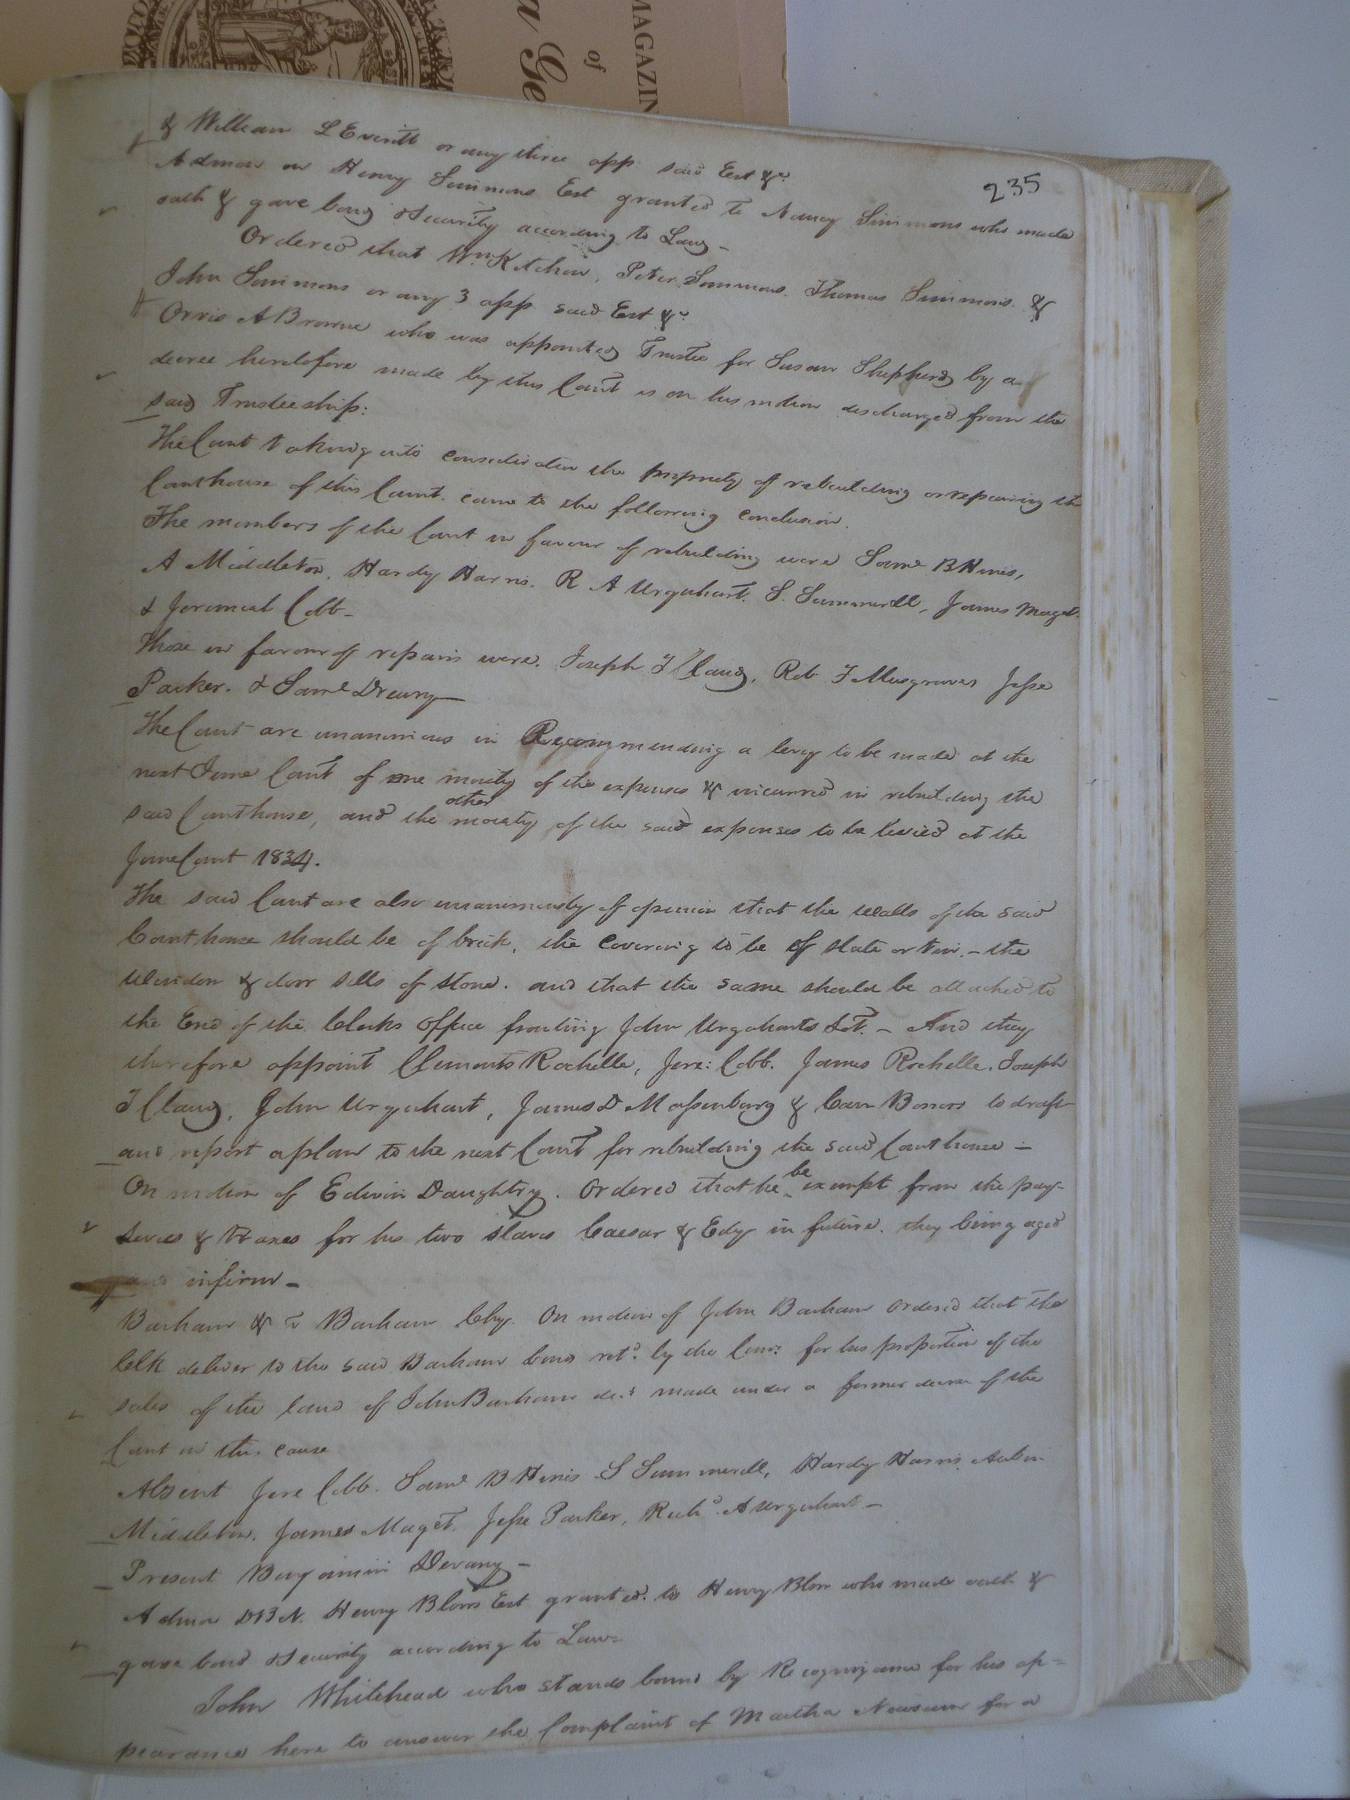 MAGAZIN
of
a Ge
235
& William L Everitt or any three app. said Est &c
Admon on Henry Simmons Est granted to Nancy Simmons who made
oath & gave bond & Security according to Law –
Ordered that Wm Kitchen, Peter Simmons, Thomas Simmons &
John Simmons or any 3 app said Est &c
Orris A Browne who was appointed Trustee for Susan Shepherd by a
decree heretofore made by this Court is on his motion discharged from the
said Trusteeship:
The Court taking into consideration the propriety of rebuilding or repairing the
Courthouse of this Count. came to the following conclusion.
The members of the Court in favour of rebuilding were Saml B Hines,
A Middleton, Hardy Harris. R A Urquhart. S. Summerell, James Maget
& Jeremiah Cobb –
Those in favour of repairs were. Joseph T Claud, Rob. T Musgraves Jesse
Parker. & Saml Drewry
The Court are unanimous in Recommending a levy to be made at the
next June Court of one moiety of the expenses & incurred in rebuilding the
said Courthouse, and the other moiety of the said expenses to be levied at the
June Court 1834.
The said Court are also unanimously of opinion that the walls of the said
Courthouse should be of brick, the covering to be of slate or tin. – the
window & door sills of stone. and that the same should be attached to
the End of the Clerks Office fronting John Urquharts Lot. – And they
therefore appoint Clements Rochelle, Jere: Cobb. James Rochelle. Joseph
T Claud, John Urquhart, James D Massenburg & Carr Bowers to draft
and report a plan to the next Court for rebuilding the said Courthouse –
On motion of Edwin Daughtry. Ordered that he be exempt from the pay-
Levies & Taxes for his two slaves Caesar & Edy in future. they being aged
and infirm –
Barham & v Barham Chy. On motion of John Barham Ordered that the
Clk deliver to the said Barham bond retd. by the Comr for his proportion of the
sales of the land of John Barham decd made under a former decree of the
Court in this cause
Absent Jere Cobb. Saml B Hines S Summerell, Hardy Harris.
Middleton. James Maget. Jesse Parker, Richd. A Urquhart –
Present Benjamin Devany –
Admon DBN. Henry Blows Est granted. to Henry Blow who made oath &
gave bond & Security according to Law
John Whitehead who stands bound by Recognizance for his ap=
pearance here to answer the Complaint of Martha Newsum for a